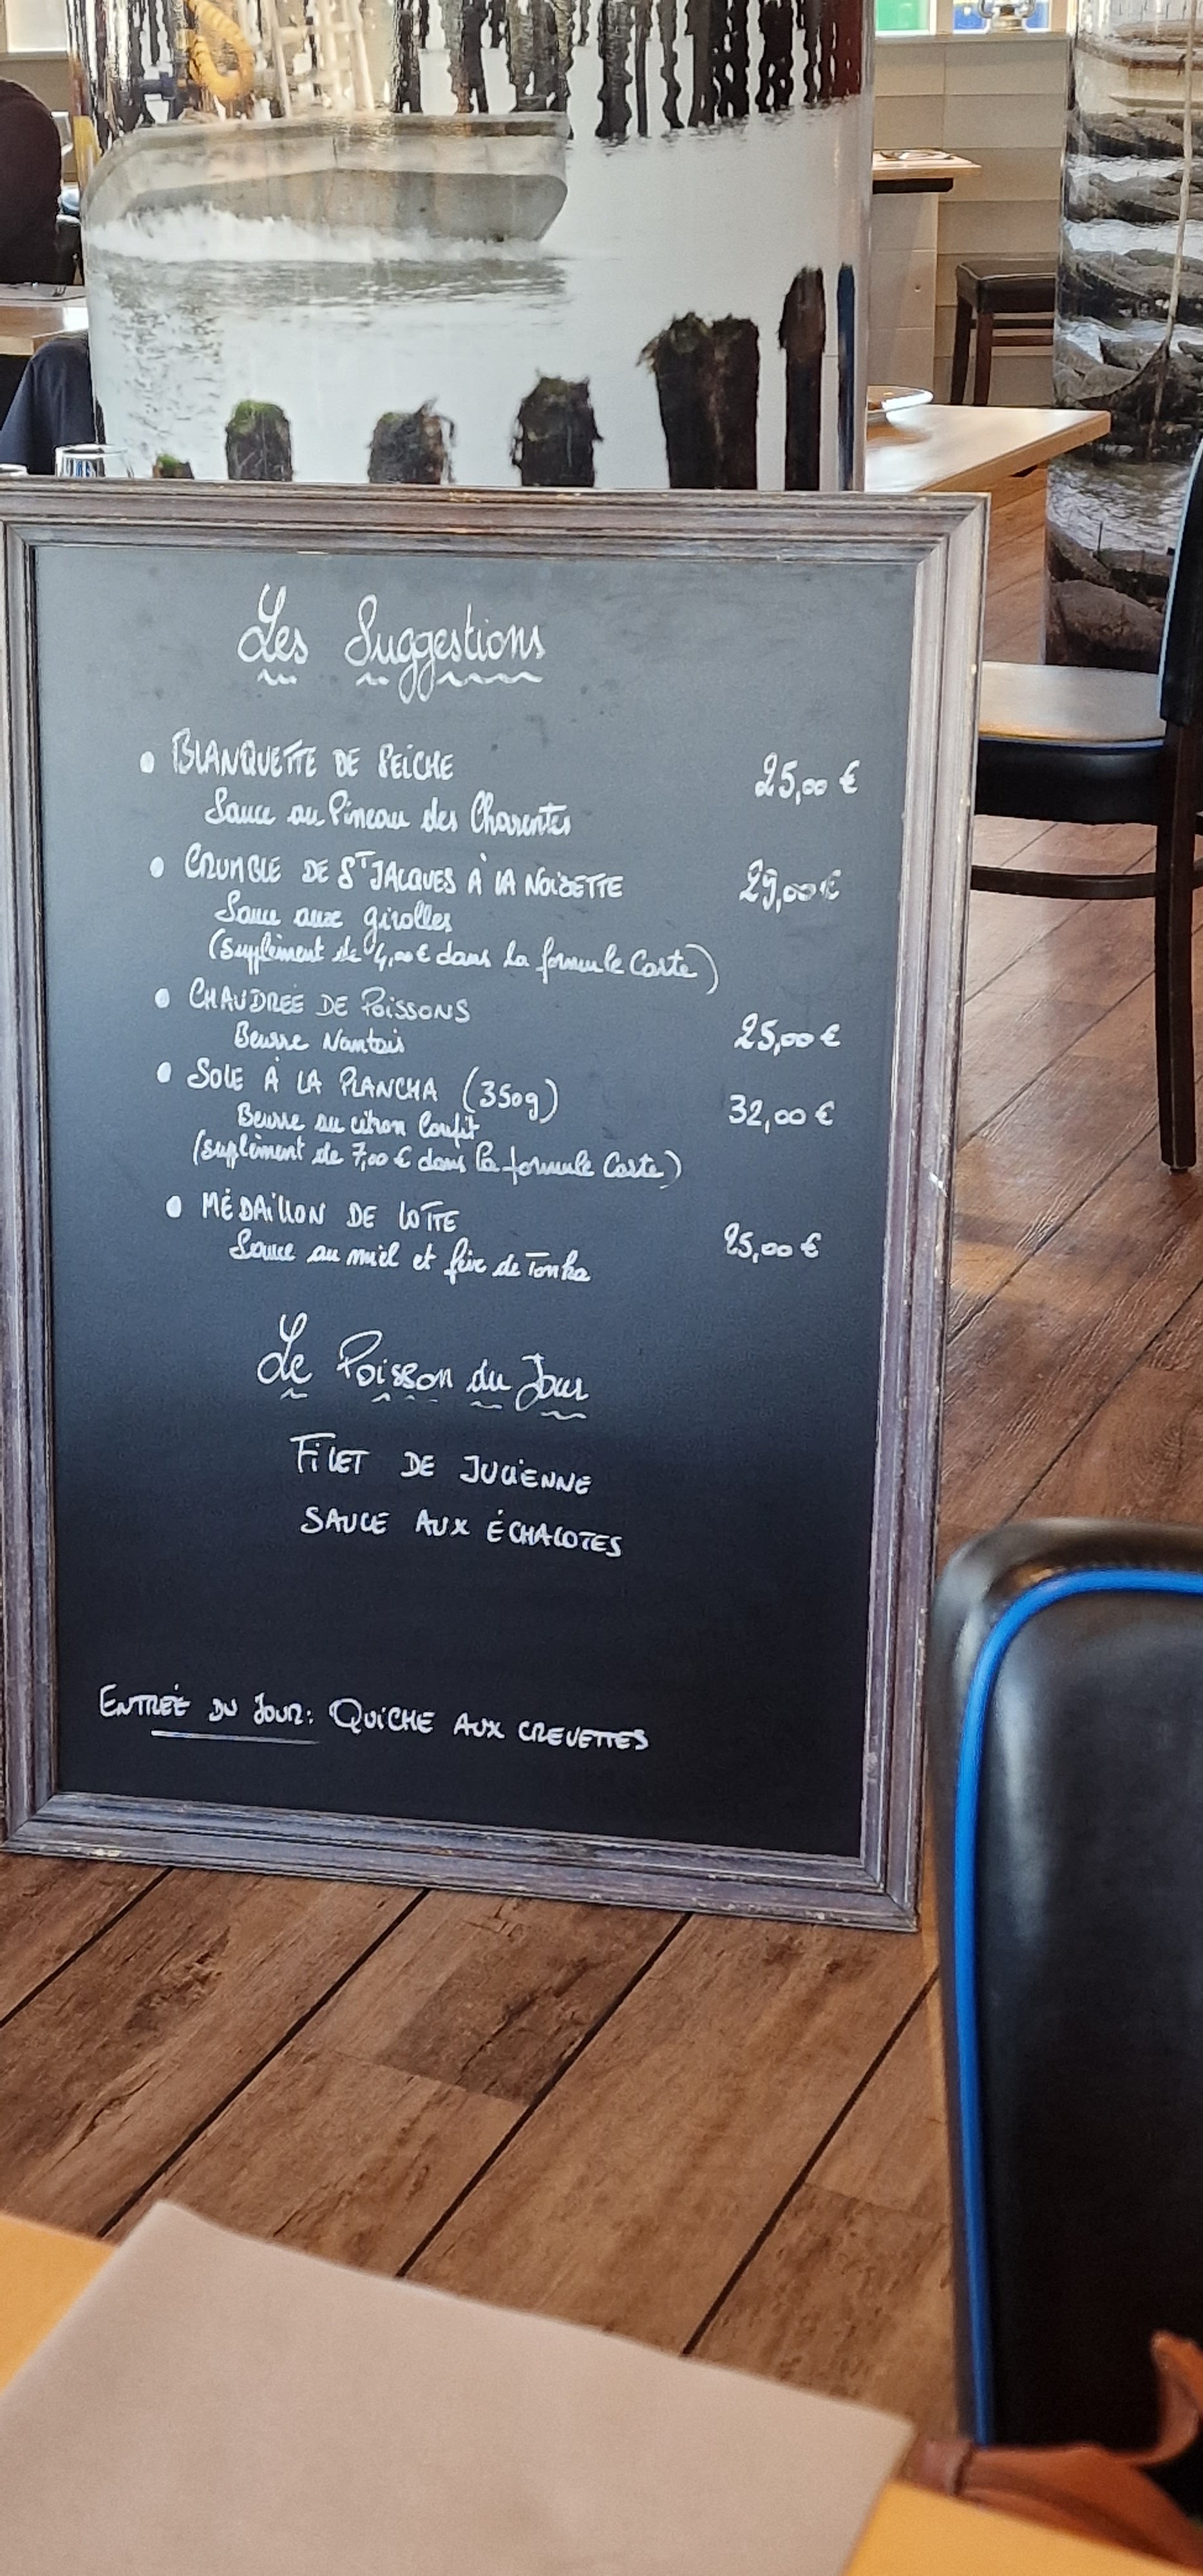 Les Suggestions
• BLANQUETTE DE SEICHE 25,00 €
Sauce au Pineau des Charentes
• CRUMBLE DE ST JACQUES À LA NOISETTE 29,00 €
Sauce aux girolles
(suplément de 4,00 € dans la formule Carte)
• CHAUDRÉE DE POISSONS 25,00 €
Beurre Nantais
• SOLE À LA PLANCHA (350g) 32,00 €
Beurre au citron Confit
(suplément de 7,00 € dans la formule Carte)
• MÉDAILLON DE LOTTE 25,00 €
Sauce au miel et fève de Tonka
Le Poisson du Jour
FILET DE JULIENNE
SAUCE AUX ÉCHALOTES
ENTRÉE DU JOUR: QUICHE AUX CREVETTES